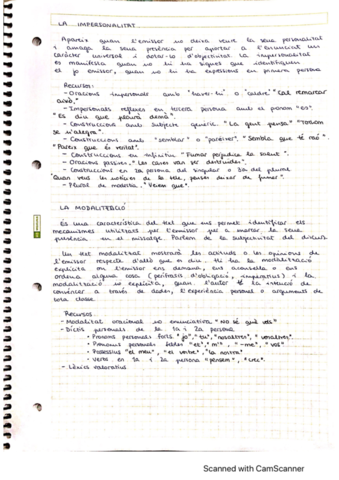 LA IMPERSONALITAT
Apareix quan l'emissor no deixa veure la seua personalitat
i amaga la seua presència per aportar a l'enunciat un
caràcter universal i dotar-lo d'objectivitat. La impersonalitat
es manifesta quan no hi ha signes que identifiquen
el jo emissor, quan no hi ha expressions en primera persona
Recursos:
- Oracions impersonals amb "haver-hi" o "caldre" "Cal remarcar
això."
- Impersonals reflexes en tercera persona amb el pronom "es".
"Es diu que plourà demà".
- Construccions amb subjecte genèric. "La gent pensa" "Tothom
se n'alegra".
- Construccions amb "semblar" o "parèixer". "Sembla que té raó".
"Pareix que és veritat".
- Construccions en infinitiu "Fumar perjudica la salut".
- Oracions passives. "Les cases van ser destruïdes".
- Construccions en 2a persona del singular o 3a del plural
"Quan veus les notícies de la tele, penses deixar de fumar".
- Plural de modèstia. "Veiem que".
LA MODALITZACIÓ
És una característica del text que ens permet identificar els
mecanismes utilitzats per l'emissor per a marcar la seua
presència en el missatge. Parlem de la subjectivitat del discurs
Un text modalitzat mostrarà les actituds o les opinions de
l'emissor respecte d'allò que es diu. Hi ha la modalització
explícita on l'emissor ens demana, ens aconsella o ens
ordena alguna cosa (perífrasis d'obligació, imperatius) i la
modalització no explícita, quan l'autor té la intenció de
convèncer a través de dades, l'experiència personal o arguments de
tota classe.
Recursos
- Modalitat oracional no enunciativa "NO sé què vols"
- Díctics personals de la 1a i 2a persona
• Pronoms personals forts "jo", "tu", "nosaltres", "vosaltres".
• Pronoms personals febles "et", "m'", "-me", "vos"
• Possessius "el meu", "el vostre", "la nostra"
• Verbs en 1a i 2a persona "pensem", "crec".
- Lèxic valoratiu
Scanned with CamScanner